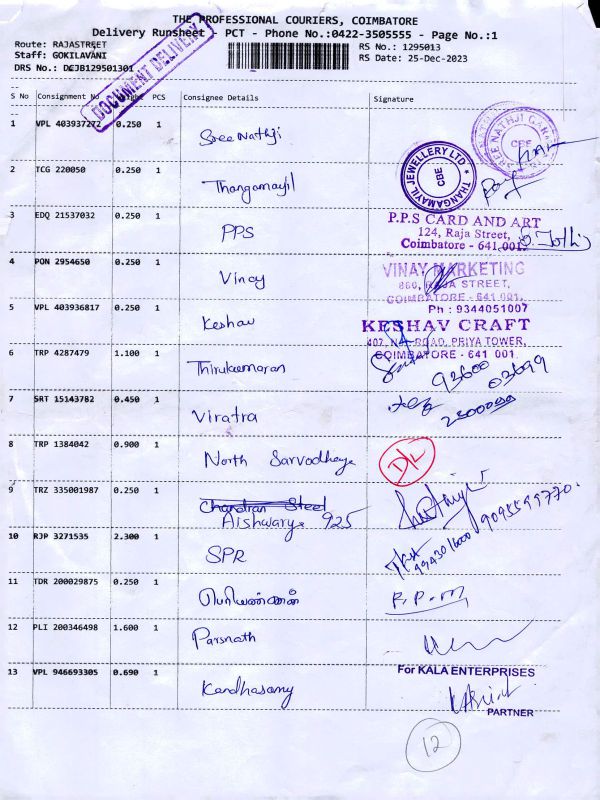 THE PROFESSIONAL COURIERS, COIMBATORE
Delivery Runsheet - PCT - Phone No.:0422-3505555 - Page No.:1
Route: RAJASTREET
Staff: GOKILAVANI
DRS No.: DEJB129501301
RS No.: 1295013
RS Date: 25-Dec-2023
DOCUMENT DELIVERY
S No Consignment No PCS Consignee Details Signature
1 VPL 403937272 0.250 1 Sree Nathji
2 TCG 220050 0.250 1 Thangamayil
THANGAMAYIL JEWELLERY LTD
CBE
3 EDQ 21537032 0.250 1 PPS
P.P.S CARD AND ART
124, Raja Street,
Coimbatore - 641 001.
4 PON 2954650 0.250 1 Vinay
VINAY MARKETING
RAJA STREET,
COIMBATORE - 641 001.
Ph : 9344051007
5 VPL 403936817 0.250 1 Keshav
KESHAV CRAFT
ROAD, PRIYA TOWER,
COIMBATORE - 641 001
6 TRP 4287479 1.100 1 Thirukumaran
93600
03699
7 SRT 15143782 0.450 1 Viratra
8 TRP 1384042 0.900 1 North Sarvodhaya
D/L
9 TRZ 335001987 0.250 1 Chandran Steel
Aishwarya 925
9095599770
10 RJP 3271535 2.300 1 SPR
11 TDR 200029875 0.250 1 பெரியண்ணன்
R.P.M
12 PLI 200346498 1.600 1 Parsnath
13 VPL 946693305 0.690 1 Kandhasamy
For KALA ENTERPRISES
PARTNER
12